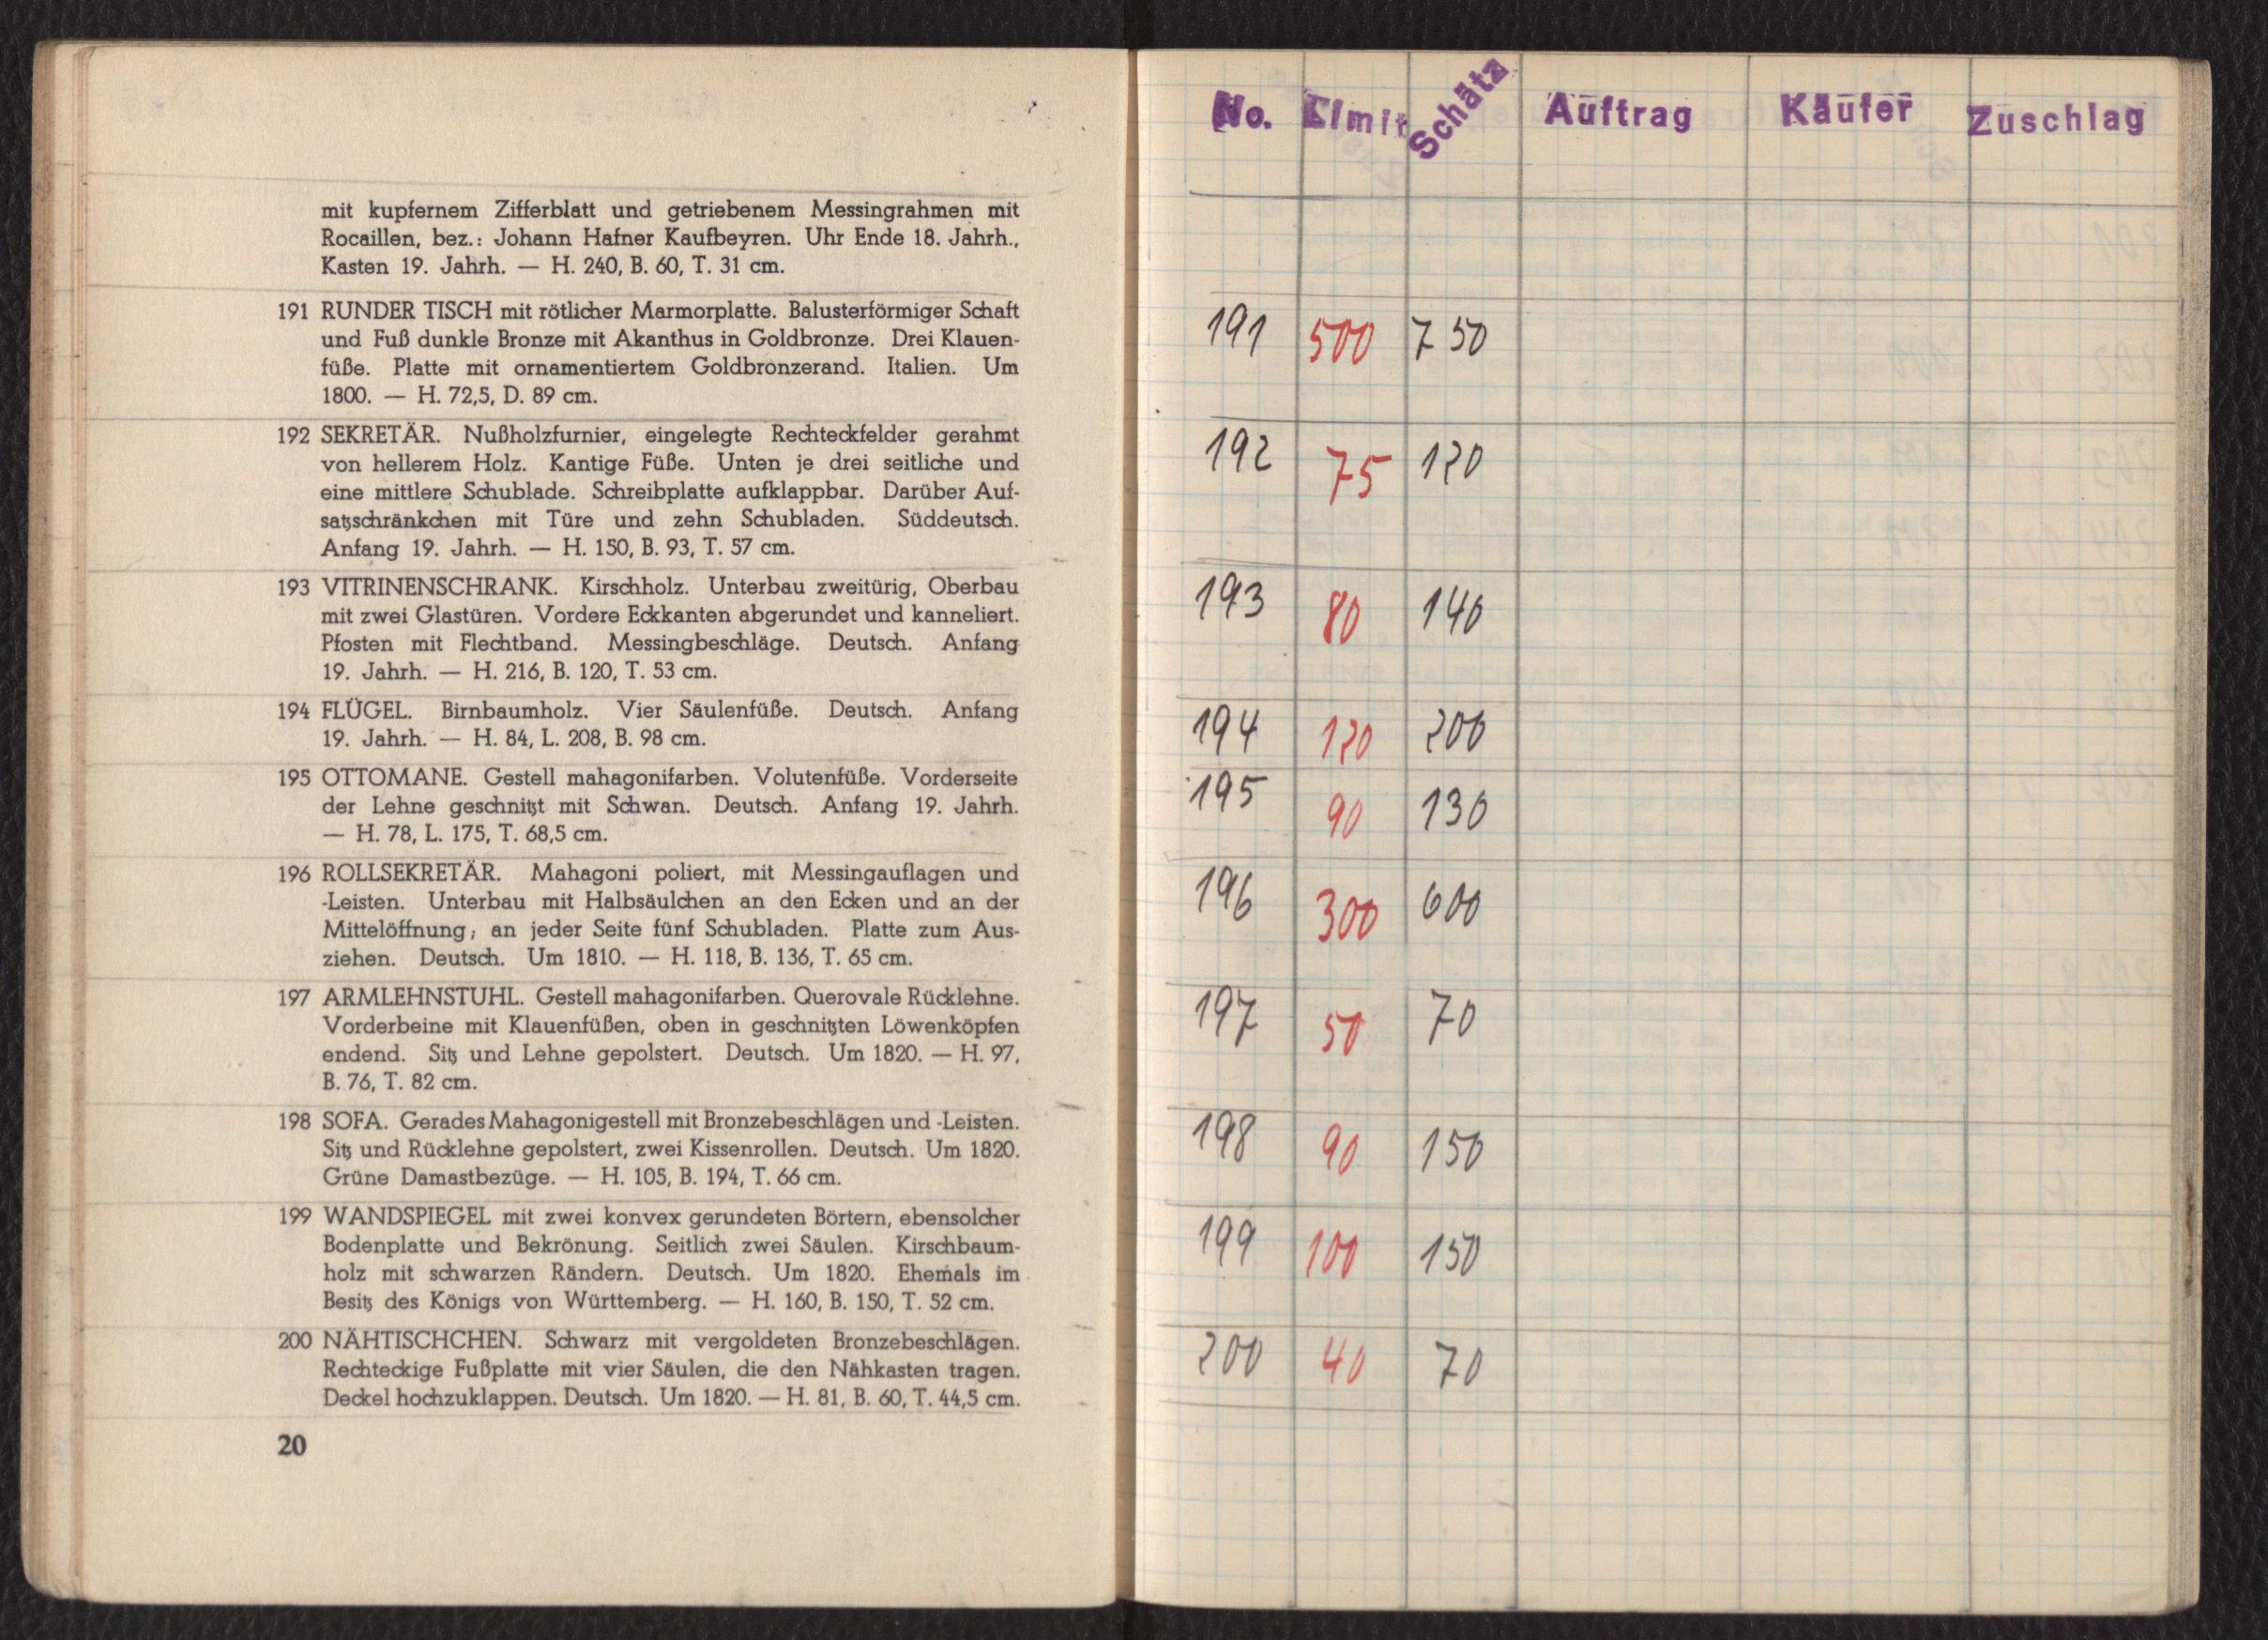 mit kupfernem Zifferblatt und getriebenem Messingrahmen mit
Rocaillen, bez.: Johann Hafner Kaufbeyren. Uhr Ende 18. Jahrh.,
Kasten 19. Jahrh. — H. 240, B. 60, T. 31 cm.
191 RUNDER TISCH mit rötlicher Marmorplatte. Balusterförmiger Schaft
und Fuß dunkle Bronze mit Akanthus in Goldbronze. Drei Klauen-
füße. Platte mit ornamentiertem Goldbronzerand. Italien. Um
1800. — H. 72,5, D. 89 cm.
192 SEKRETÄR. Nußholzfurnier, eingelegte Rechteckfelder gerahmt
von hellerem Holz. Kantige Füße. Unten je drei seitliche und
eine mittlere Schublade. Schreibplatte aufklappbar. Darüber Auf-
satzschränkchen mit Türe und zehn Schubladen. Süddeutsch.
Anfang 19. Jahrh. — H. 150, B. 93, T. 57 cm.
193 VITRINENSCHRANK. Kirschholz. Unterbau zweitürig, Oberbau
mit zwei Glastüren. Vordere Eckkanten abgerundet und kanneliert.
Pfosten mit Flechtband. Messingbeschläge. Deutsch. Anfang
19. Jahrh. — H. 216, B. 120, T. 53 cm.
194 FLÜGEL. Birnbaumholz. Vier Säulenfüße. Deutsch. Anfang
19. Jahrh. — H. 84, L. 208, B. 98 cm.
195 OTTOMANE. Gestell mahagonifarben. Volutenfüße. Vorderseite
der Lehne geschnitzt mit Schwan. Deutsch. Anfang 19. Jahrh.
— H. 78, L. 175, T. 68,5 cm.
196 ROLLSEKRETÄR. Mahagoni poliert, mit Messingauflagen und
-Leisten. Unterbau mit Halbsäulchen an den Ecken und an der
Mittelöffnung; an jeder Seite fünf Schubladen. Platte zum Aus-
ziehen. Deutsch. Um 1810. — H. 118, B. 136, T. 65 cm.
197 ARMLEHNSTUHL. Gestell mahagonifarben. Querovale Rücklehne.
Vorderbeine mit Klauenfüßen, oben in geschnitzten Löwenköpfen
endend. Sitz und Lehne gepolstert. Deutsch. Um 1820. — H. 97,
B. 76, T. 82 cm.
198 SOFA. Gerades Mahagonigestell mit Bronzebeschlägen und -Leisten.
Sitz und Rücklehne gepolstert, zwei Kissenrollen. Deutsch. Um 1820.
Grüne Damastbezüge. — H. 105, B. 194, T. 66 cm.
199 WANDSPIEGEL mit zwei konvex gerundeten Börtern, ebensolcher
Bodenplatte und Bekrönung. Seitlich zwei Säulen. Kirschbaum-
holz mit schwarzen Rändern. Deutsch. Um 1820. Ehemals im
Besitz des Königs von Württemberg. — H. 160, B. 150, T. 52 cm.
200 NÄHTISCHCHEN. Schwarz mit vergoldeten Bronzebeschlägen.
Rechteckige Fußplatte mit vier Säulen, die den Nähkasten tragen.
Deckel hochzuklappen. Deutsch. Um 1820. — H. 81, B. 60, T. 44,5 cm.
20
No. Limit Schätz Auftrag Käufer Zuschlag
191 500 750
192 75 120
193 80 140
194 120 200
195 90 130
196 300 600
197 50 70
198 90 150
199 100 150
200 40 70